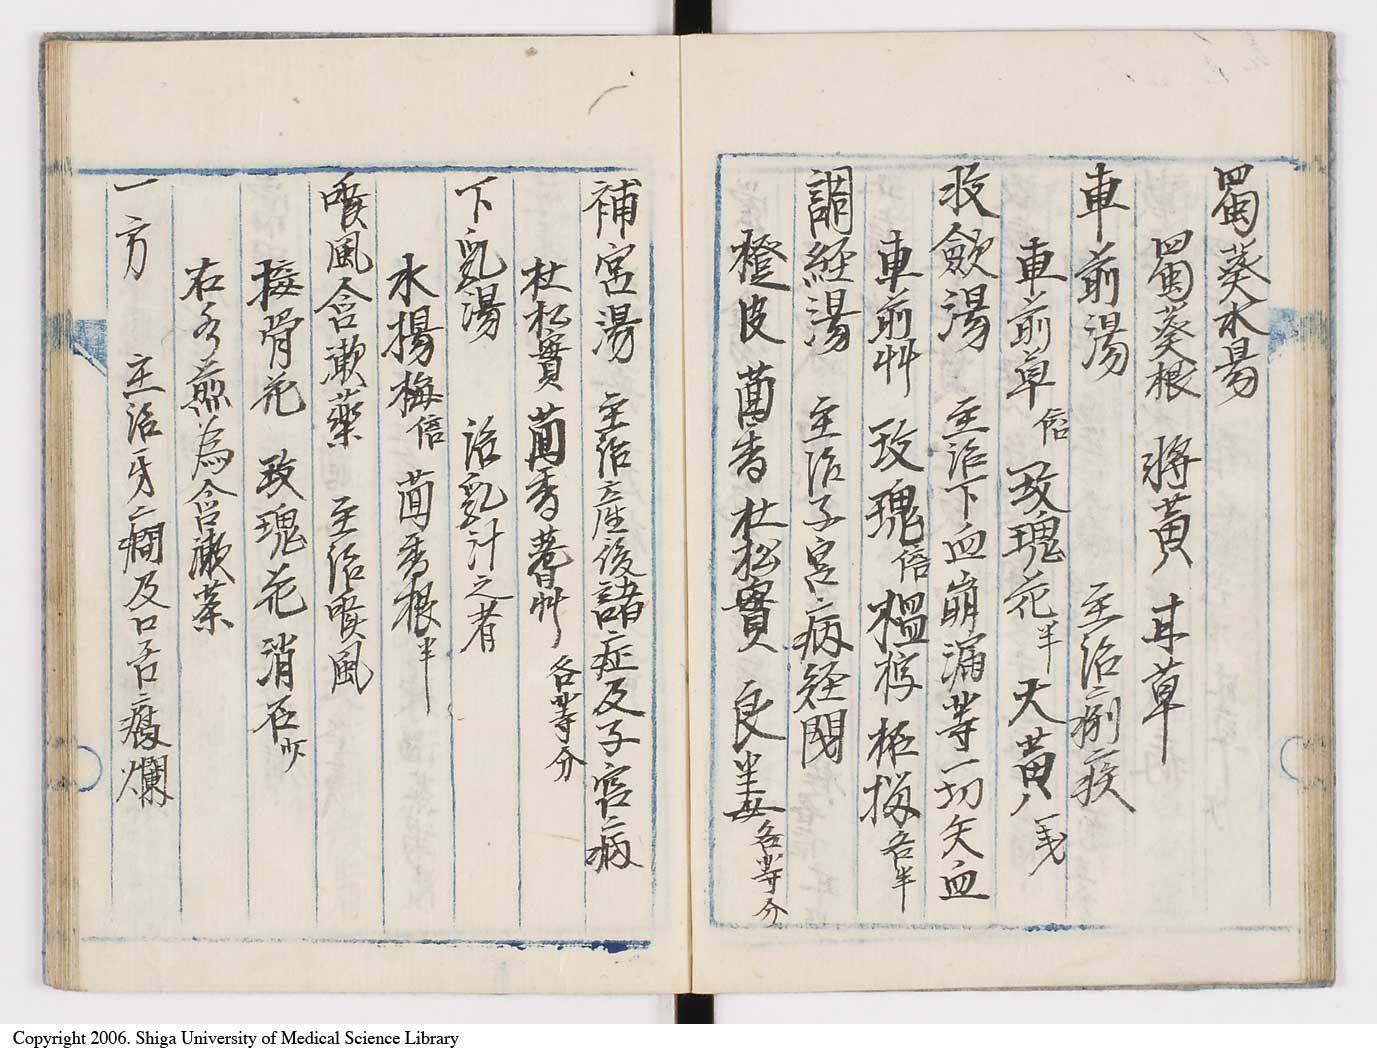 蜀葵水湯
蜀葵根 将黄 甘草
車前湯 主治痢疾
車前草倍 玫瑰花半 大黄八戔
収歛湯 主治下血崩漏等一切失血
車前艸 玫瑰倍 榲桲 榧梅各半
調経湯 主治子宮病経閉
橙皮 茴香 杜松實 良姜各等分
補宮湯 主治産後諸症及子宮病
杜松實 茴香 蓍艸各等分
下乳湯 治乳汁之者
水楊梅倍 茴香根半
喉風含漱薬 主治喉風
接骨花 玫瑰花 消石少
右水煎為含漱薬
一方 主治牙癎及口舌腐爛
Copyright 2006. Shiga University of Medical Science Library